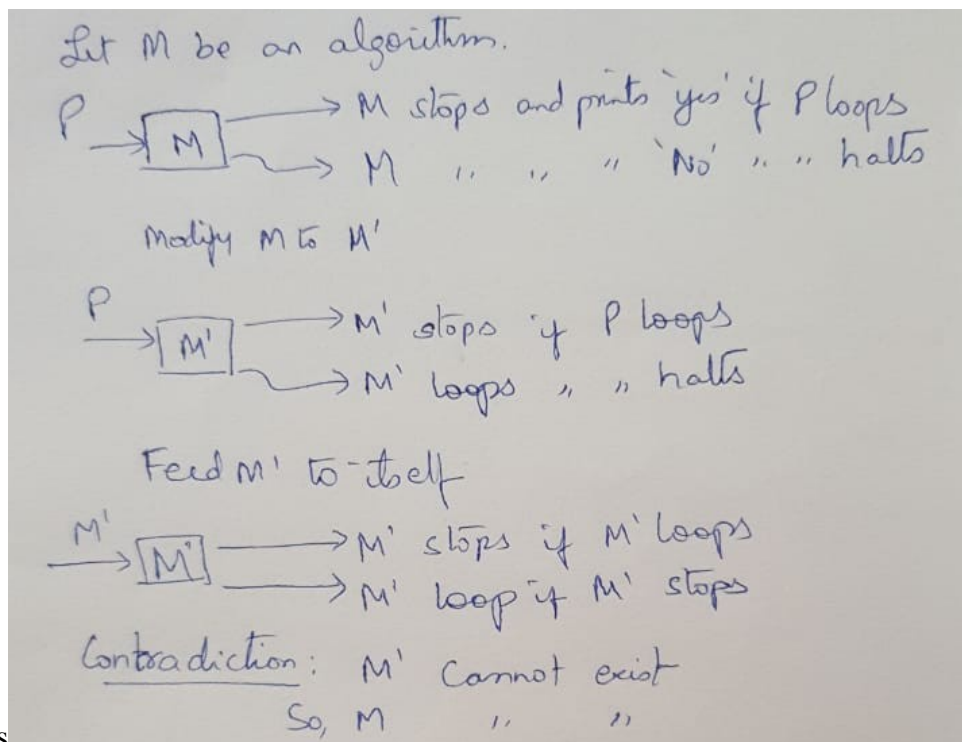 Let M be an algorithm.
P
M
M stops and prints 'yes' if P loops
M " " " 'No' " " halts
Modify M to M'
P
M'
M' stops if P loops
M' loops " " halts
Feed M' to itself
M'
M'
M' stops if M' loops
M' loop if M' stops
Contradiction: M' Cannot exist
So, M " "
s